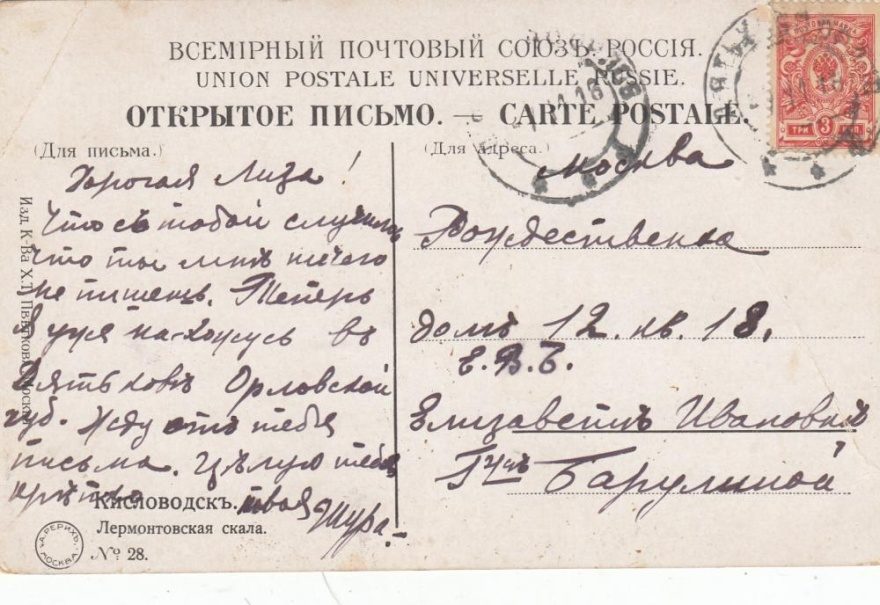 ВСЕМІРНЫЙ ПОЧТОВЫЙ СОЮЗЪ. РОССІЯ.
UNION POSTALE UNIVERSELLE RUSSIE.
ОТКРЫТОЕ ПИСЬМО. — CARTE POSTALE.
(Для письма.)
Дорогая Лиза!
Что съ тобой случилось
что ты мнѣ ничего
не пишешь. Теперь
я уже нахожусь въ
Дятьковѣ Орловской
губ. Жду отъ тебя
письма. Цѣлую тебя
крѣпко твоя Шура.
(Для адреса.)
Москва
Рождественка
домъ 12. кв. 18.
Е.В.Б.
Елизаветѣ Ивановнѣ
Г-жѣ Барулиной
Кисловодскъ.
Лермонтовская скала.
№ 28.
А. РЕРИХЪ.
МОСКВА
Изд. К-ва Х.Т.
ТРИ 3 КОП